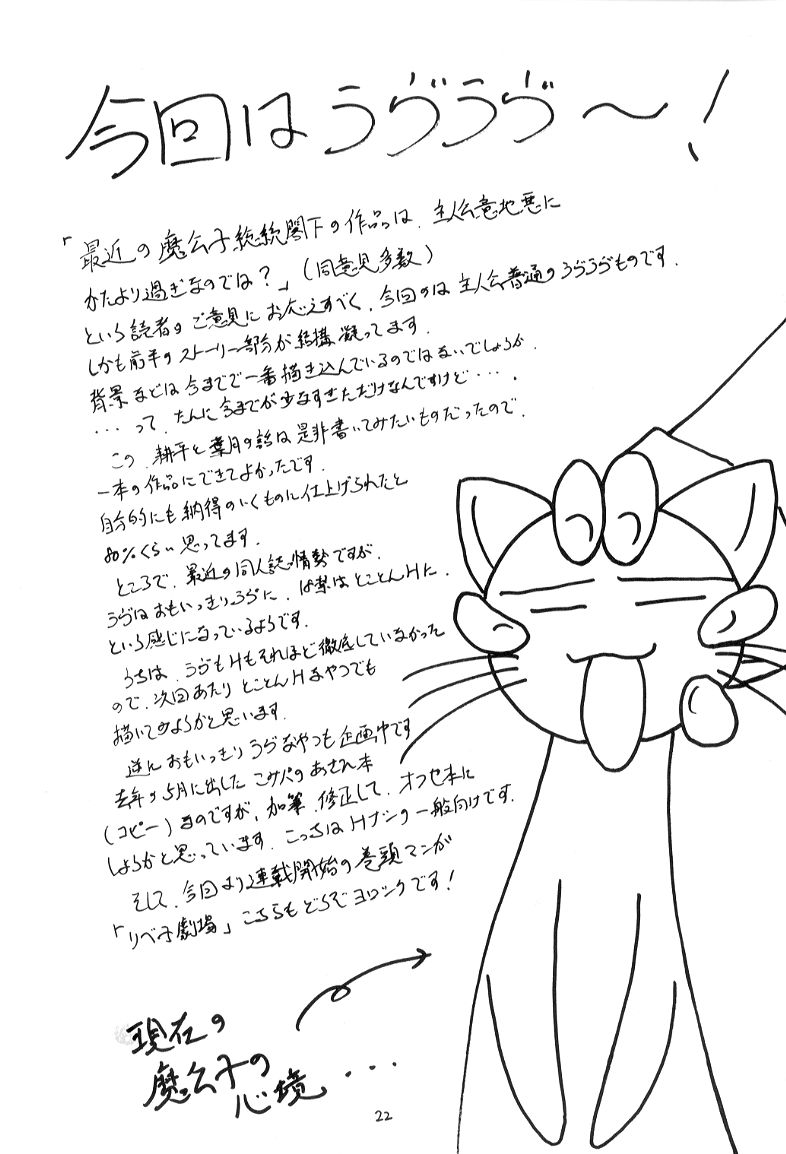 今回はうヴうヴ〜!
「最近の魔公子総統閣下の作品は、主人公意地悪に
かたより過ぎなのでは?」(同意見多数)
という読者のご意見にお応えすべく、今回のは主人公普通のうヴうヴものです.
しかも前半のストーリー部分が結構凝ってます.
背景などは今までで一番描き込んでいるのではないでしょうか.
・・・って、たんに今までが少なすぎただけなんですけど・・・.
この、耕平と葉月の話は是非書いてみたいものだったので、
一本の作品にできてよかったです.
自分的にも納得のいくものに仕上げられたと
80%くらい思ってます.
ところで、最近の同人誌情勢ですが、
うヴはおもいっきりうヴに、はとことんHに、
という感じになっているようです.
うちは、うヴもHもそれほど徹底していなかった
ので、次回あたりとことんHなやつでも
描いてみようかと思います.
逆におもいっきりうヴなやつも企画中です
去年の5月に出したこみパのあさひ本
(コピー)なのですが、加筆、修正して、オフセ本に
しようかと思っています.こっちはHナシの一般向けです.
そして、今回より連載開始の巻頭マンガ
「リベ子劇場」こちらもどうぞヨロシクです!
現在の
魔公子の
心境・・・
22